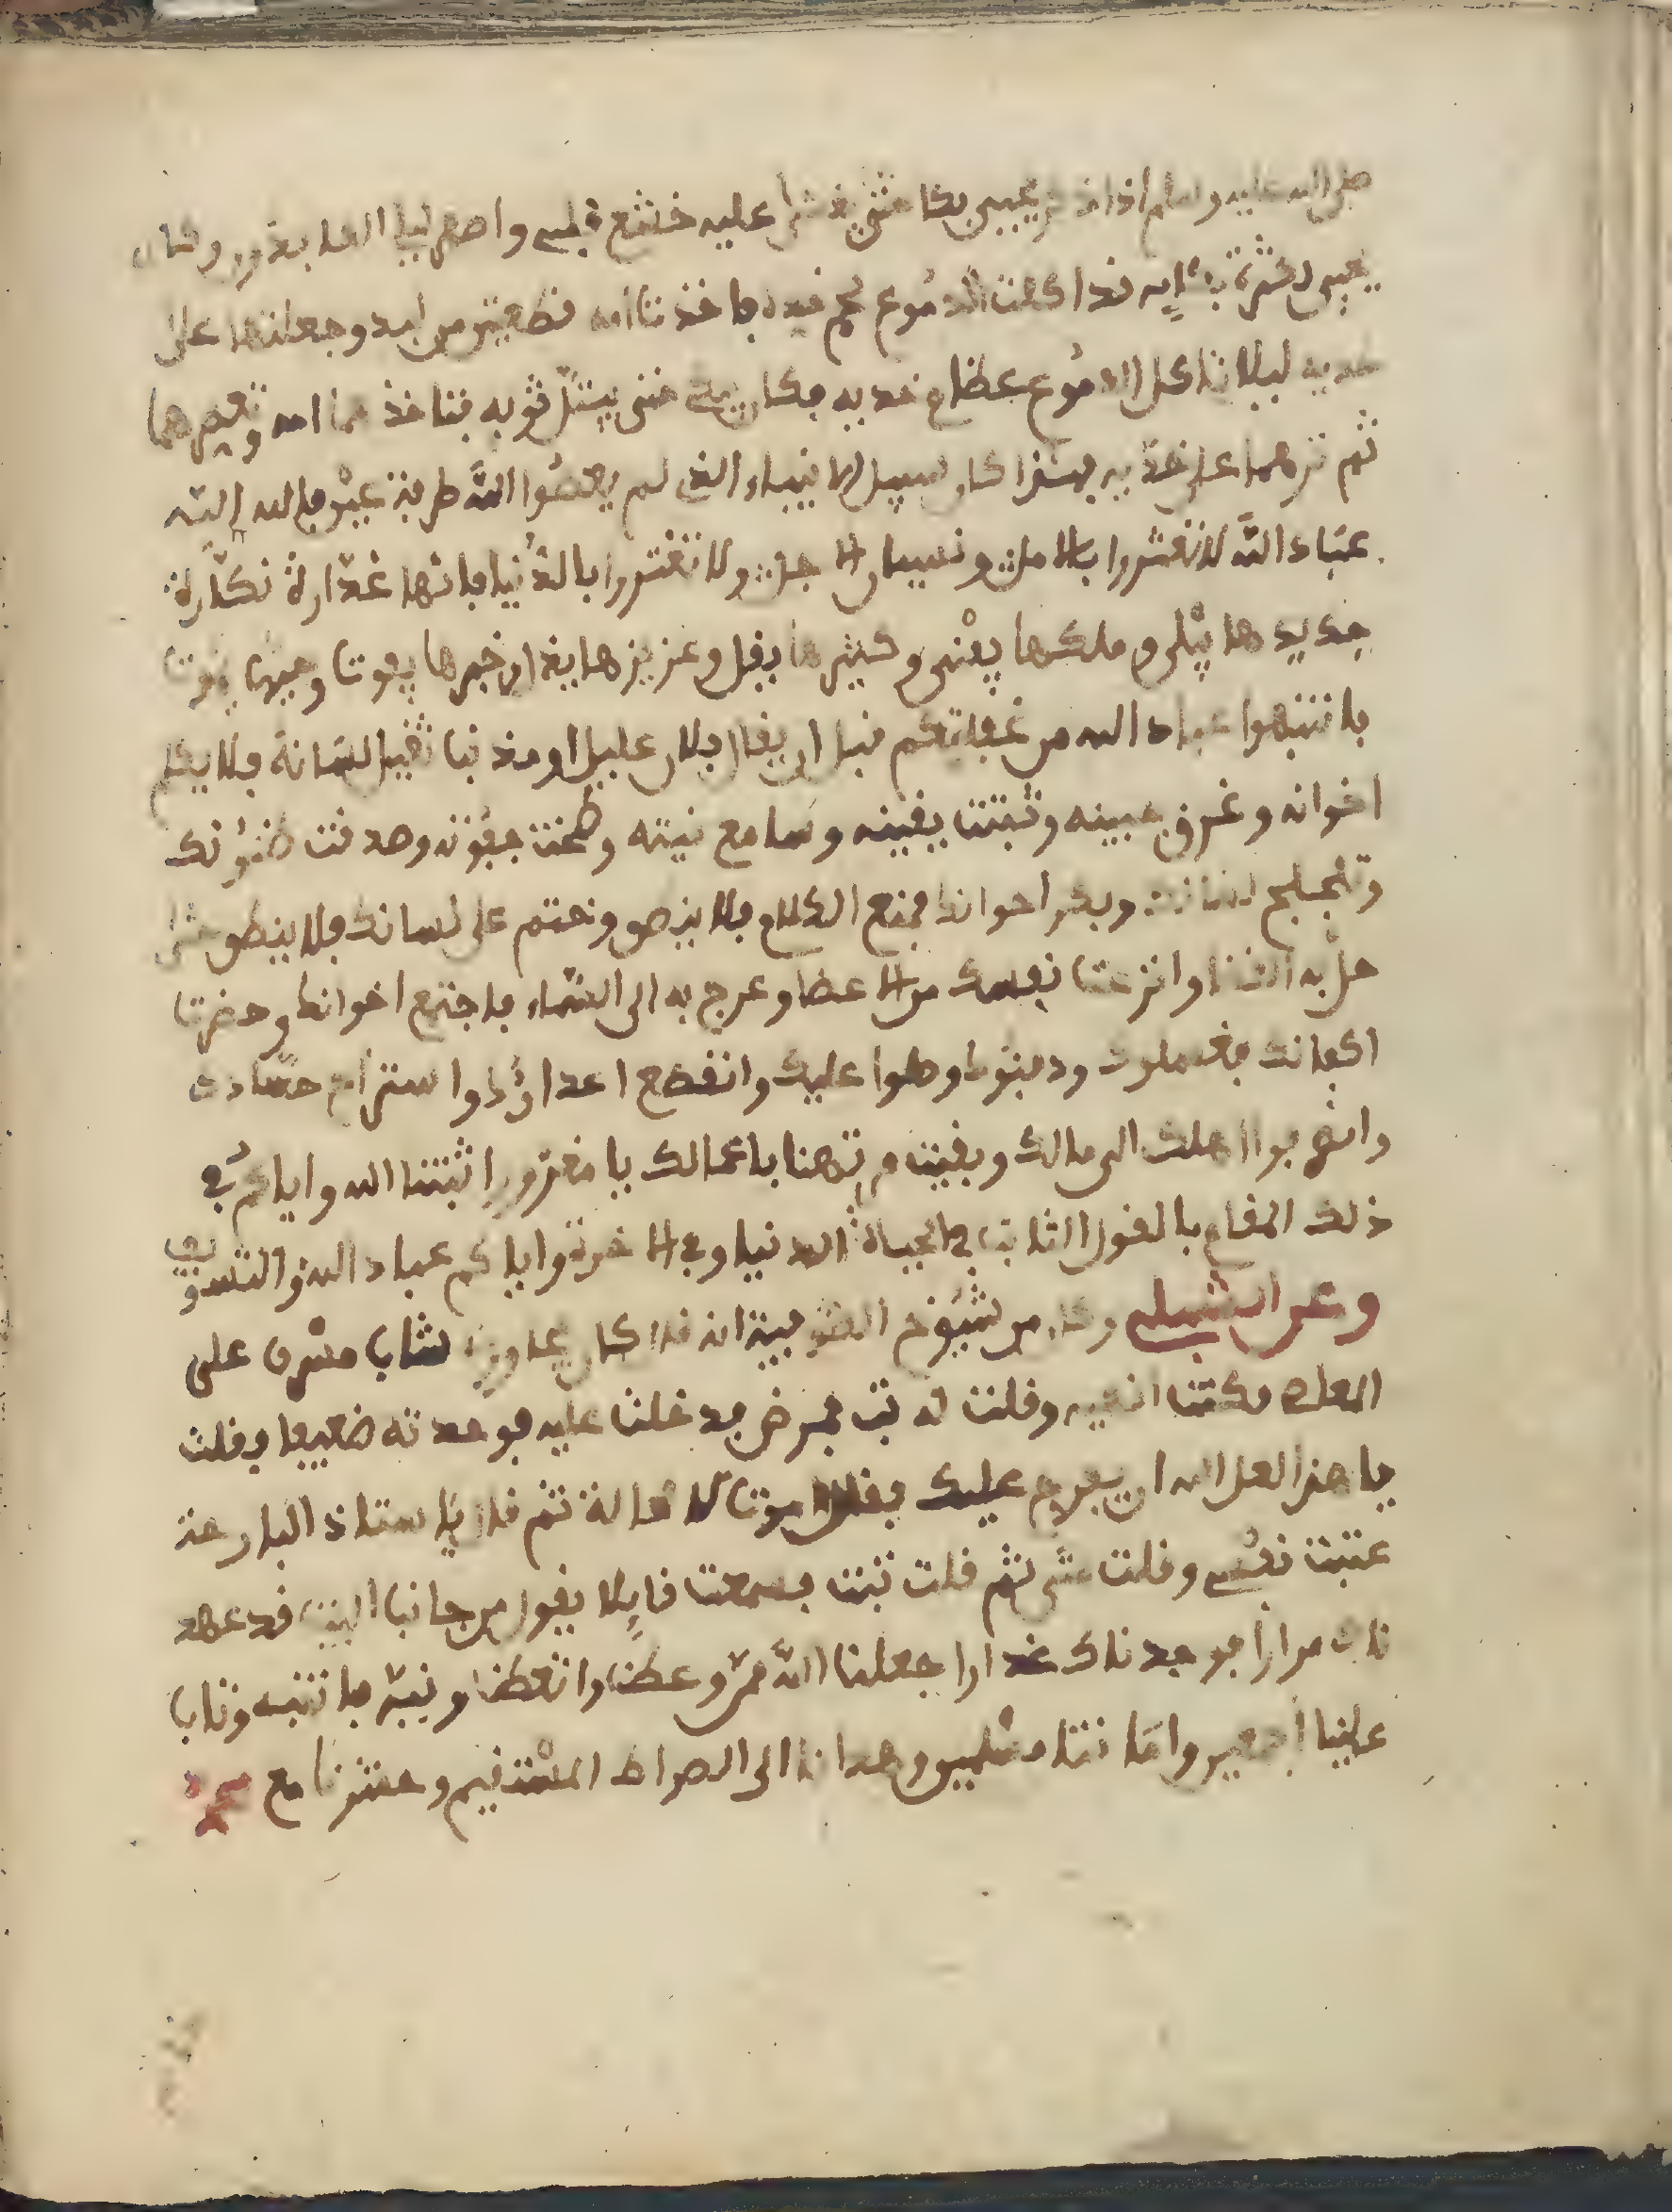 صلى الله عليه وسلم اذا ذكر يحيى بكا حتى يغشى عليه خشع قلبي واصغى ليا وكان
يحيى لكثرة بكايه قد اكلت الدموع لحم خده فاخذت امه قطعتين من لبد وجعلتها على
خديه ليلا تاكل الدموع عظام خديه فكان يبكي حتى يبتل ثوبه فتاخذهما امه وتعصرهما
ثم تردهما على خديه فهذا كان سبيل الانبياء الذي لم يعصوا الله طرفة عين فالله الله
عباد الله لا تغتروا بالامل ونسيان الاجل ولا تغتروا بالدنيا فانها غدارة نكارة
جديدها يبلى وملكها يفنى وكثيرها يقل وعزيزها يذل وخيرها يفوت وحيها يموت
فانتبهوا عباد الله من غفلتكم قبل ان يقال فلان عليل او مدنف ثقيل لسانه فلا يكلم
اخوانه وعرق جبينه وتبتت يقينه وسامع نيته وطمحت جفونه وصدقت ظنونك
وتلجلج لسانك وبكى اخوانك فمنع الكلام فلا ينطق وختم على لسانك فلا ينطق حتى
حل به القضا وانتزعت نفسك من الاعضا وعرج به الى السماء فاجتمع اخوانك وحضرت
اكفانك فغسلوك ودفنوك وصلوا عليك وانقطع اعداؤك واستراح حسادك
وانصرفوا اهلك الى مالك وبقيت مرتهنا باعمالك يا مغرور ثبتنا الله واياكم في
ذلك المقام بالقول الثابت في الحياة الدنيا وفي الاخرة واياكم عباد الله والتسويف
وعن الشبلي وكان من شيوخ الصوفية انه قال كان يجاورنا شاب مسرف على
المعاص فكنت انهيه وقلت له تب فمرض فدخلت عليه فوجدته ضعيفا فقلت
يا هذا لعل الله ان يفرج عليك فقال الموت لا محالة ثم قال يا استاذ البارحة
عتبت نفسي وقلت متى ثم قلت تبت فسمعت قايلا يقول من جانب البيت قد عهد
ناك مرارا فوجدناك غدارا جعلنا الله ممن وعظ واتعظ ونبه فانتبه وتاب
علينا اجمعين واماتنا مسلمين وهدانا الى الصراط المستقيم وحشرنا مع محمد